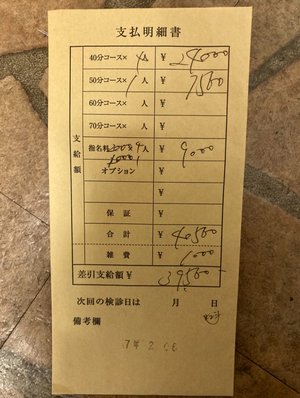 支払明細書
支給額
40分コース× 4人 ¥ 24000
50分コース× 1人 ¥ 7500
60分コース× 人 ¥
70分コース× 人 ¥
指名料 1000× 9人 ¥ 9000
オプション ¥
¥
保証 ¥
合計 ¥ 40500
雑費 ¥ 1000
差引支給額 ¥ 39500
次回の検診日は 月 日
備考欄